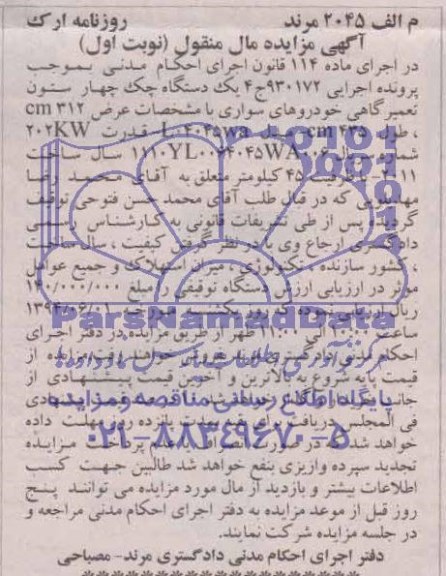 م الف ۲۰۴۵ مرند روزنامه ارک
آگهی مزایده مال منقول (نوبت اول)
در اجرای ماده ۱۱۴ قانون اجرای احکام مدنی بموجب
پرونده اجرایی ۹۳۰۱۷۲ج۴ یک دستگاه چک چهار ستون
تعمیرگاهی خودروهای سواری با مشخصات عرض ۳۱۲ cm
، طول ۴۲۵ cm قدرت ۲۰۲KW
شماره سال ساخت
۴۵ کیلومتر متعلق به آقای محمد رضا
که در قبال طلب آقای محمد حسن فتوحی توقیف
گردیده پس از طی تشریفات قانونی به کارشناس رسمی
دادگستری ارجاع وی با در نظر گرفتن کیفیت ، سال ساخت
، کشور سازنده ، تکنولوژی ، میزان استهلاک و جمیع عوامل
موثر در ارزیابی ارزش دستگاه توقیفی مبلغ ۱۴۰/۰۰۰/۰۰۰
ریال ارزیابی نموده که روز یکشنبه مورخه ۱۳۹۴/۰۶/۰۱
ساعت الی ۱۱:۰۰ ظهر از طریق مزایده در دفتر اجرای
احکام مدنی دادگستری مرند بفروش خواهد رفت مزایده از
قیمت پایه شروع به بالاترین و آخرین قیمت پیشنهادی از
جانب
فی المجلس دریافت پانزده روز مهلت داده
خواهد شد در صورت پرداخت مزایده
تجدید سپرده واریزی بنفع خواهد شد طالبین جهت کسب
اطلاعات بیشتر و بازدید از مال مورد مزایده می توانند پنج
روز قبل از موعد مزایده به دفتر اجرای احکام مدنی مراجعه و
در جلسه مزایده شرکت نمایند.
دفتر اجرای احکام مدنی دادگستری مرند- مصباحی
ParsNamadData
پایگاه اطلاع رسانی مناقصه و مزایده
۰۲۱-۸۸۳۴۹۶۷۰-۵